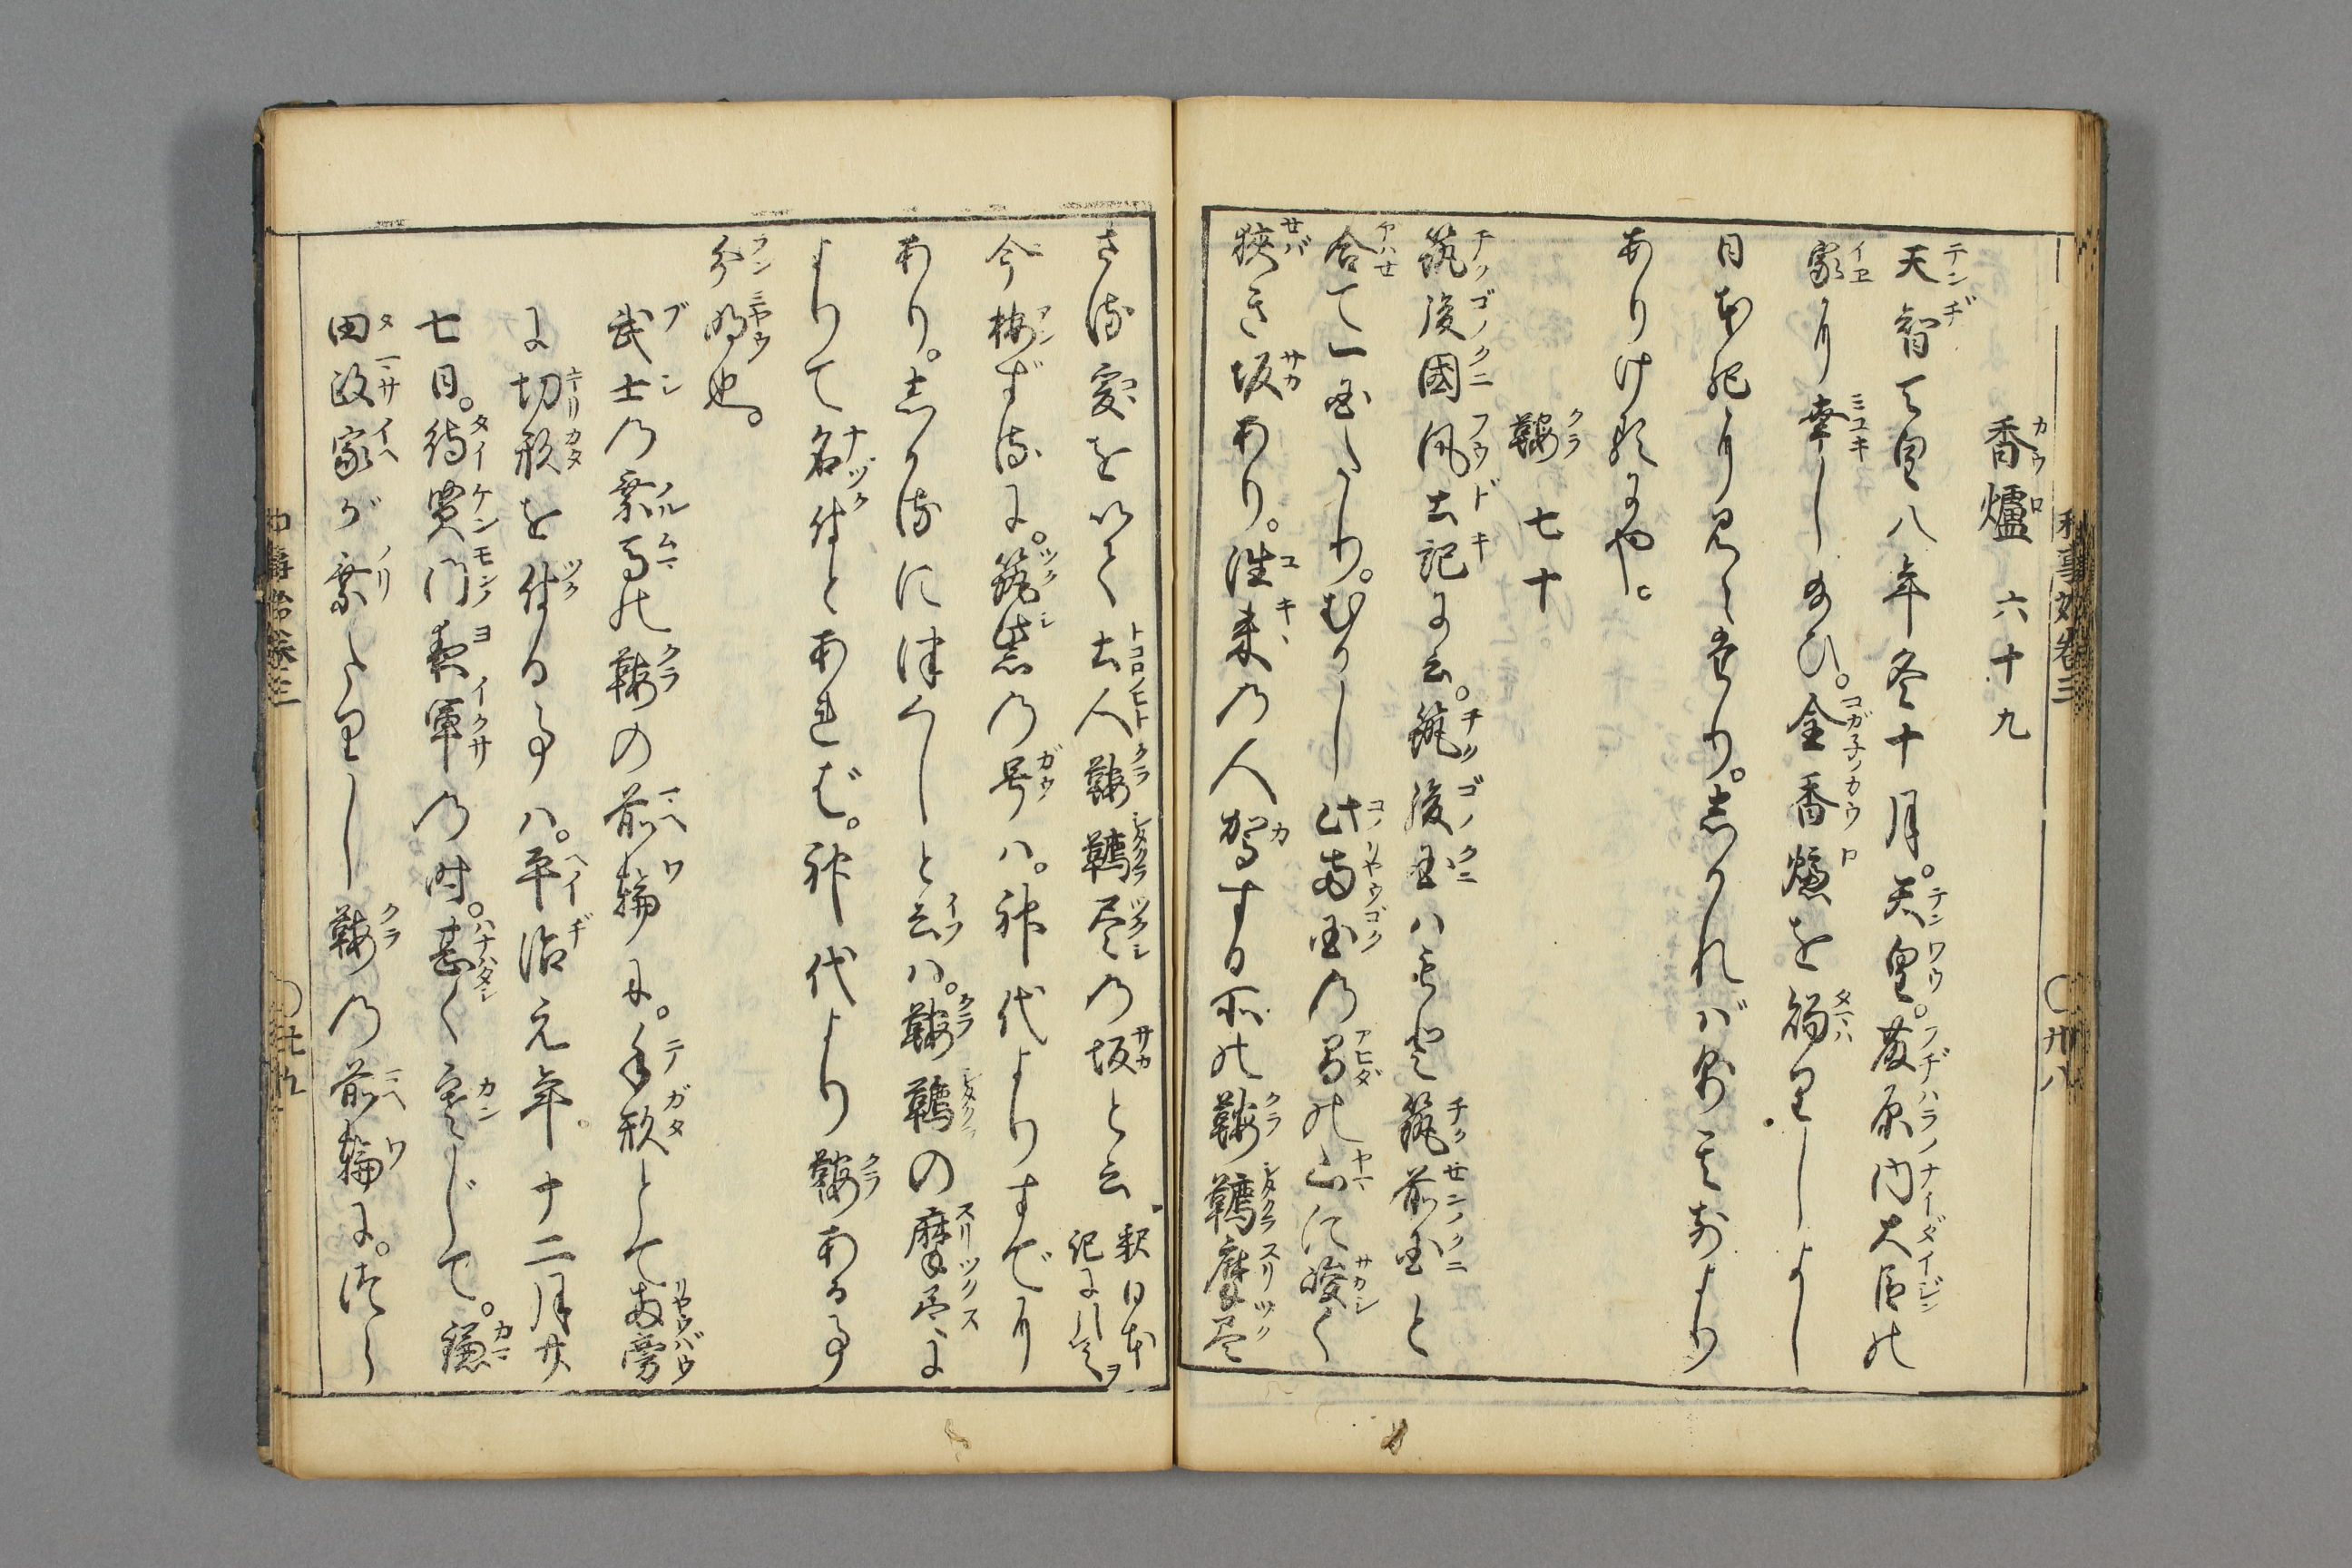 和事始巻三 〇廿八
香爐 六十九
天智天皇八年冬十月。天皇。藤原内大臣の
家に幸し給ひ。金香爐を賜りしよし
日本紀に見えたり。しかれば是其前より
ありけるにや。
鞍 七十
筑後國風土記に云。筑後国ハもと筑前国と
合て一国たり。むかし此両国の間の山に峻く
狭き坂あり。往来の人駕する所の鞍韉摩尽
さる。爰を以て土人鞍韉尽の坂と云 釈日本紀に引之
今按ずるに。筑紫の号ハ。神代よりすでに
あり。しかるに津くしと云ハ。鞍韉の摩尽に
よりて名付とあれば。神代より鞍ある事
分明也。
武士の乗馬の鞍の前輪に。手形とて両旁
に切形を付る事ハ。平治元年。十二月廿
七日。待賢門夜軍の時。甚く寒じて。鎌
田政家が乗たりし鞍の前輪に。つら
和事始巻三 〇廿九